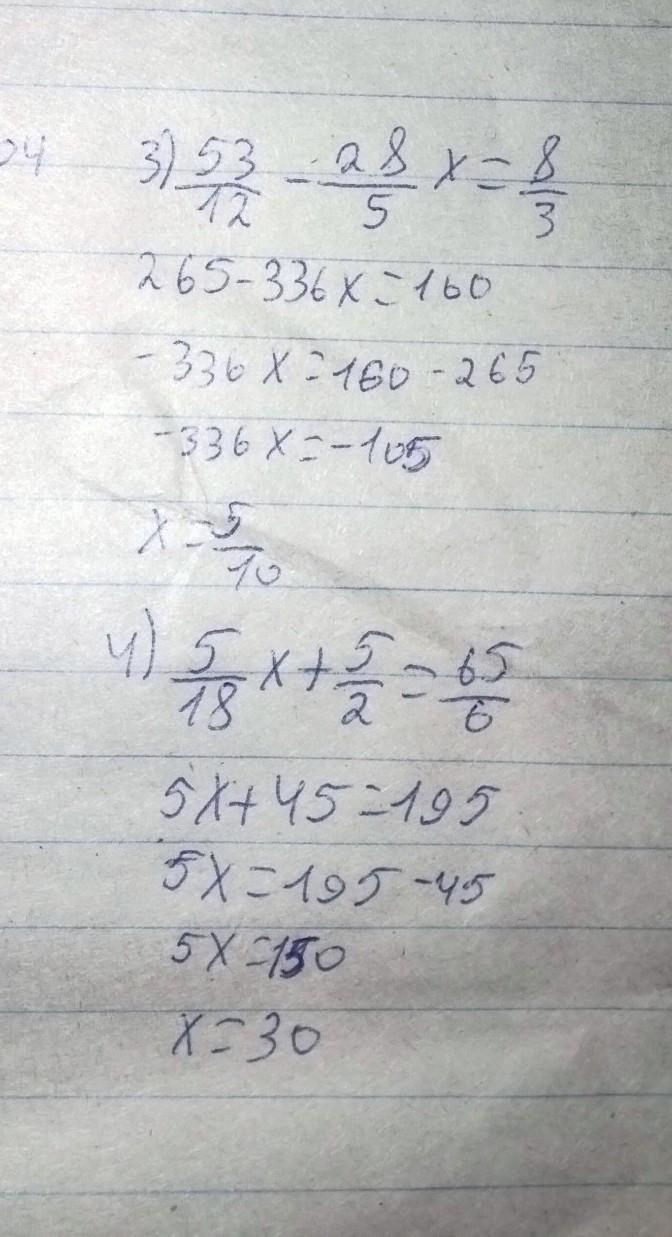 04
3) 53/12 - 28/5 x = 8/3
265-336x=160
-336x=160-265
-336x=-105
x=5/10
4) 5/18 x+5/2=65/6
5x+45=195
5x=195-45
5x=150
x=30